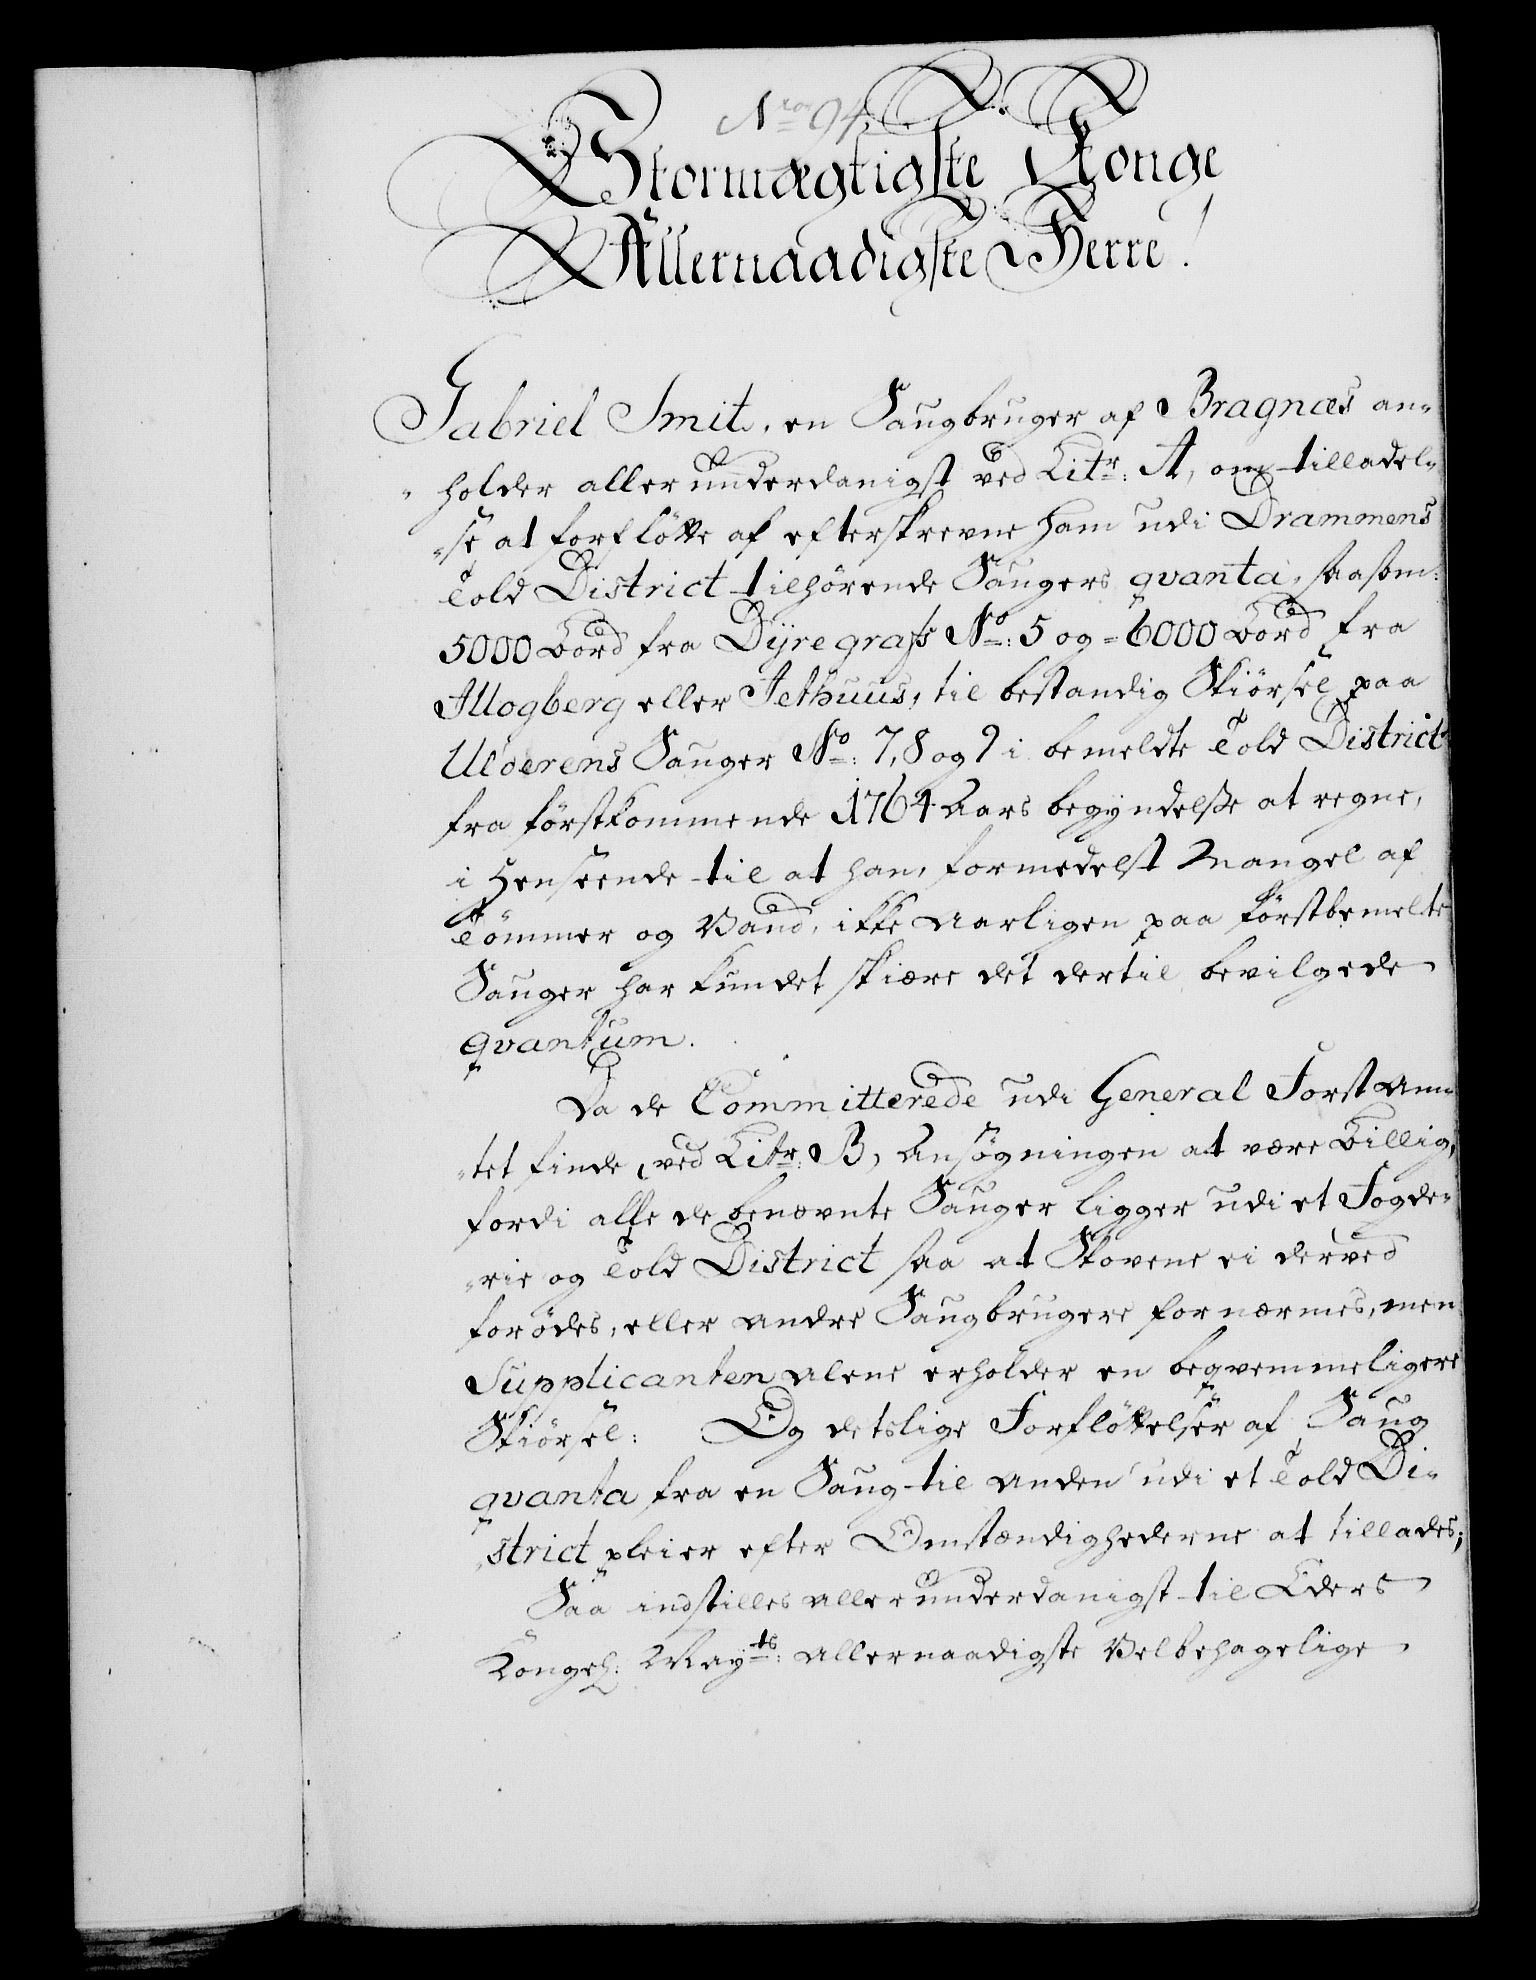 Nro 94.
Stormægtigste Konge
Allernaadigste Herre!
Gabriel Smit, en Saugbruger af Bragnæs an-
holder allerunderdanigst ved Litr: A, om tilladel-
se at forfløtte af efterskrevne ham udi Drammens
Told District tilhørende Sauger's qvanta, saasom:
5000 Bord fra Dijregrafs No: 5 og 6000 Bord fra
Mogberg eller Jethuus, til bestandig Skiørsel paa
Ulverens Sauger No: 7, 8 og 9 i bemeldte Told District
fra førstkommende 1764 Aars begyndelse at regne,
i Henseende til at han, formedelst Mangel af
Tømmer og Vand, ikke aarligen paa førstbemelte
Sauger har kundet skiære det dertil bevilgede
qvantum.
Da de Committerede udi General Forst Am-
tet finde, ved Litr: B, Ansøgningen at være billig,
fordi alle de benævnte Sauger ligger udi et Fogde-
rie og Told District saa at Skovene ei derved
forødes, eller andre Saugbrugere fornærmes, men
Supplicanten alene erholder en beqvemmeligere
Skiørsel: Og deslige Forfløttelser af Saug
qvanta fra en Saug til anden udi et Told Di-
strict pleier efter Omstændighederne at tillades;
Saa indstilles allerunderdanigst til Eders
Kongel: Mayts: allernaadigste Velbehagelige